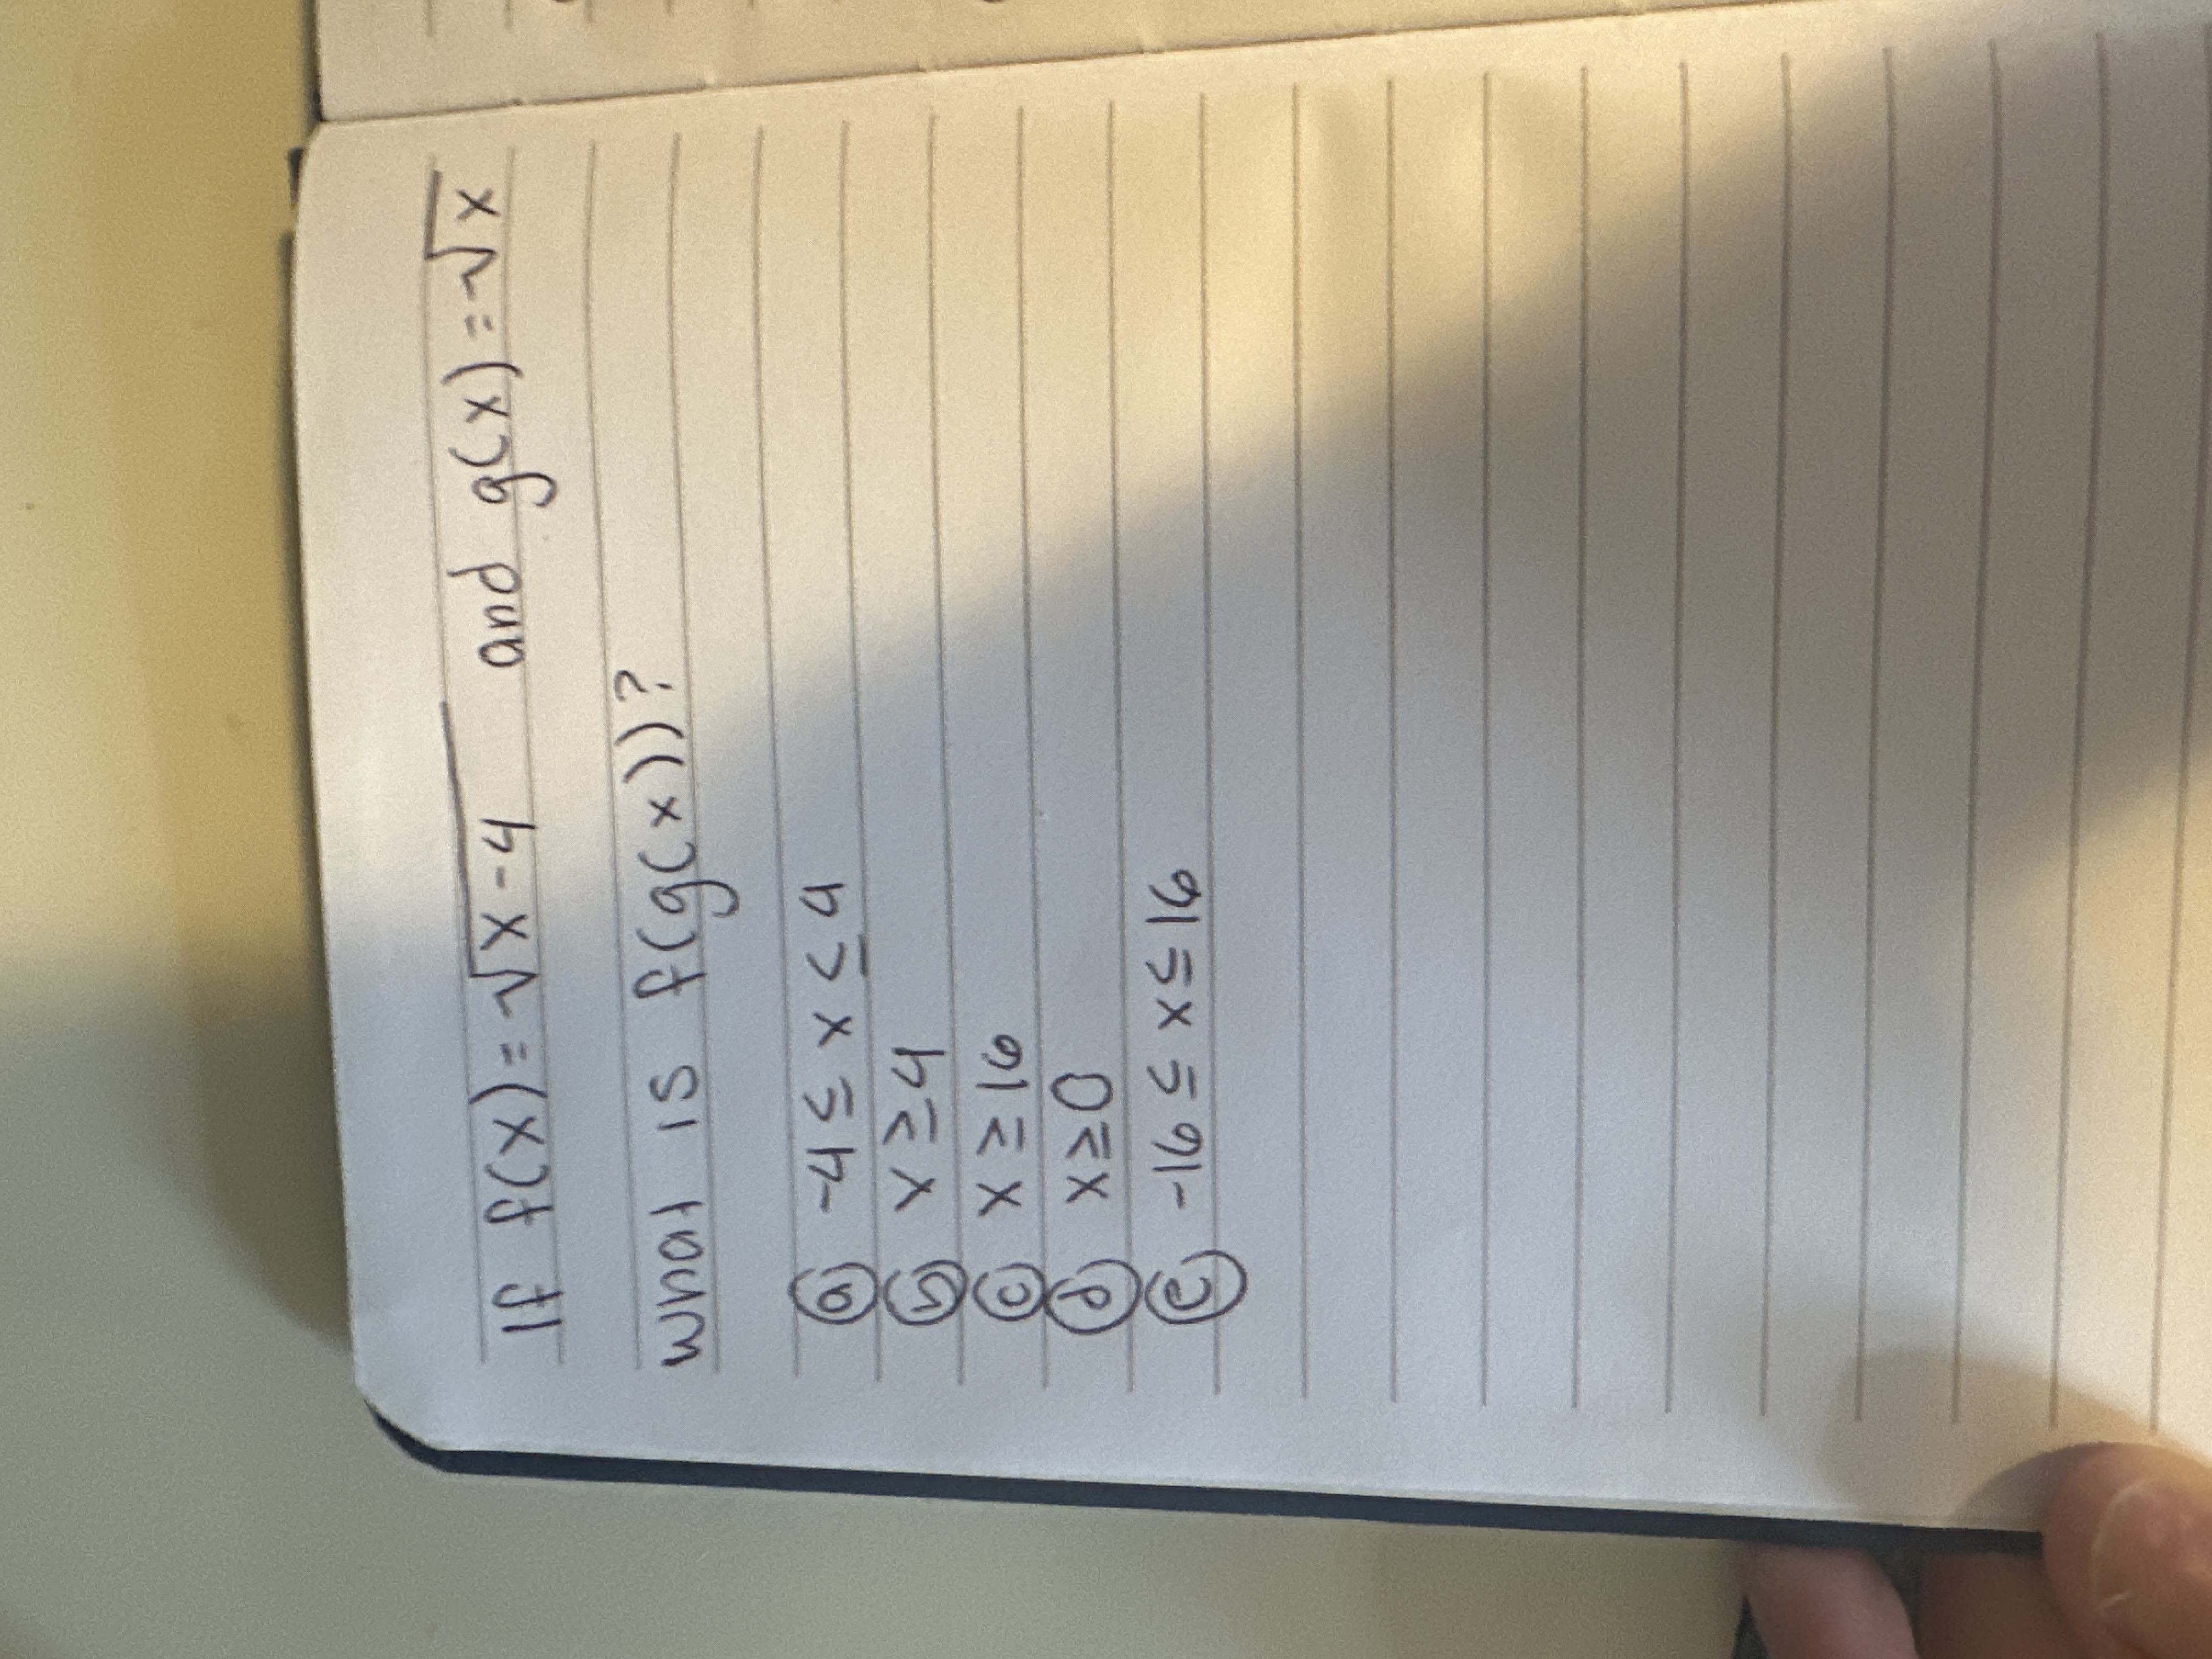 If f(x) = √x-4 and g(x) = √x
what is f(g(x))?
ⓐ -4 ≤ x ≤ 4
ⓑ x ≥ 4
ⓒ x ≥ 16
ⓓ x ≥ 0
ⓔ -16 ≤ x ≤ 16